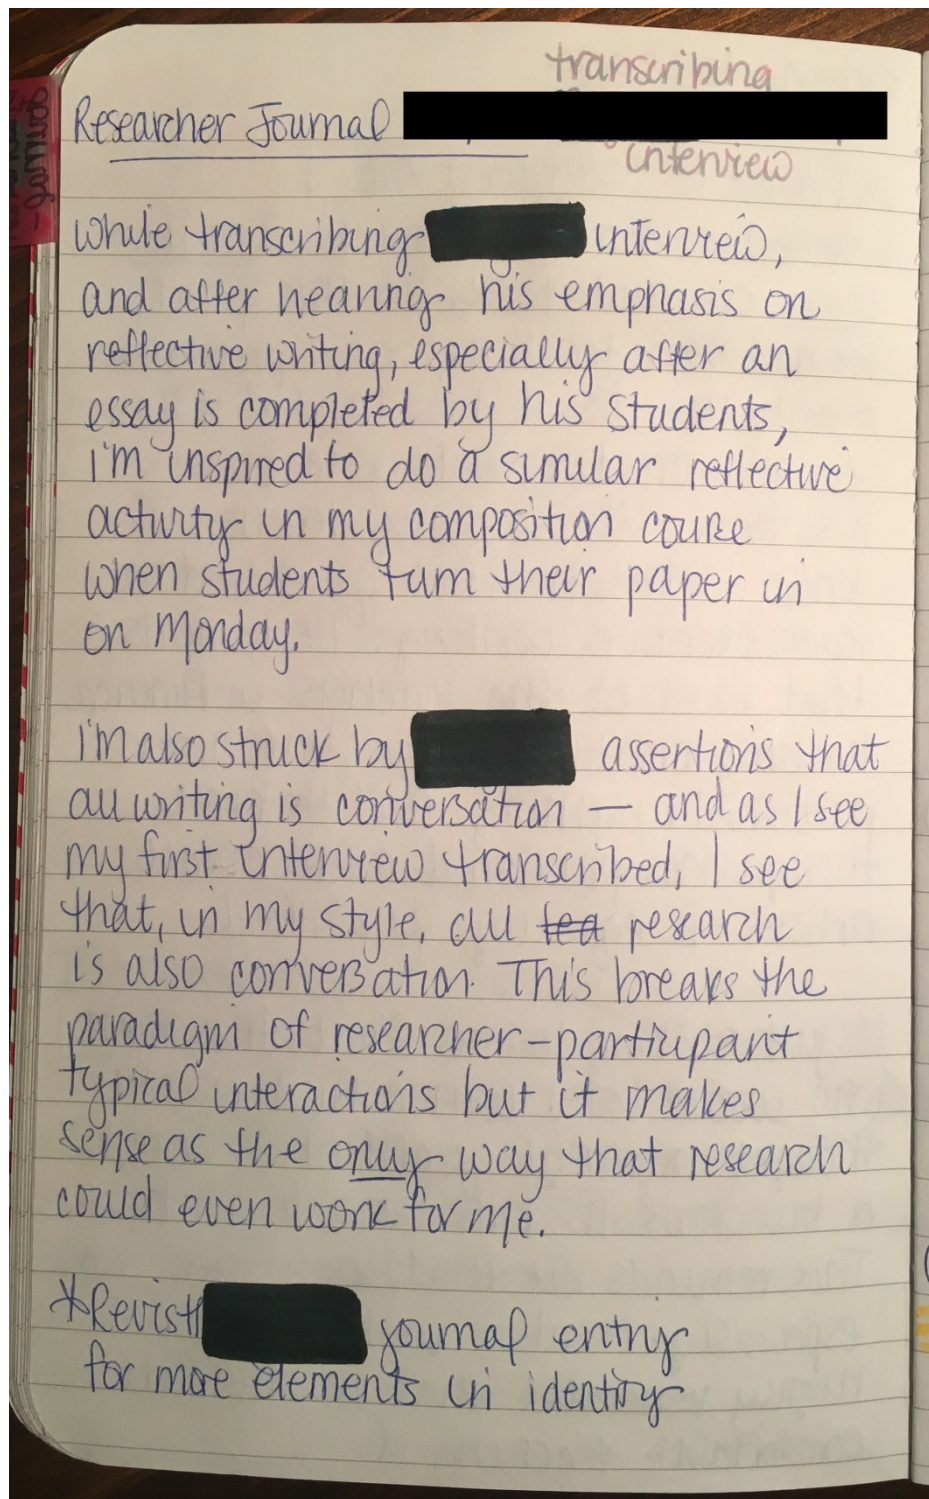 transcribing
Researcher Journal
interview
while transcribing interview,
and after hearing his emphasis on
reflective writing, especially after an
essay is completed by his students,
i'm inspired to do a similar reflective
activity in my composition course
when students turn their paper in
on Monday.
i'm also struck by assertions that
all writing is conversation — and as I see
my first interview transcribed, I see
that, in my style, all tea research
is also conversation. This breaks the
paradigm of researcher-participant
typical interactions but it makes
sense as the only way that research
could even work for me.
*Revisit journal entry
for more elements in identity